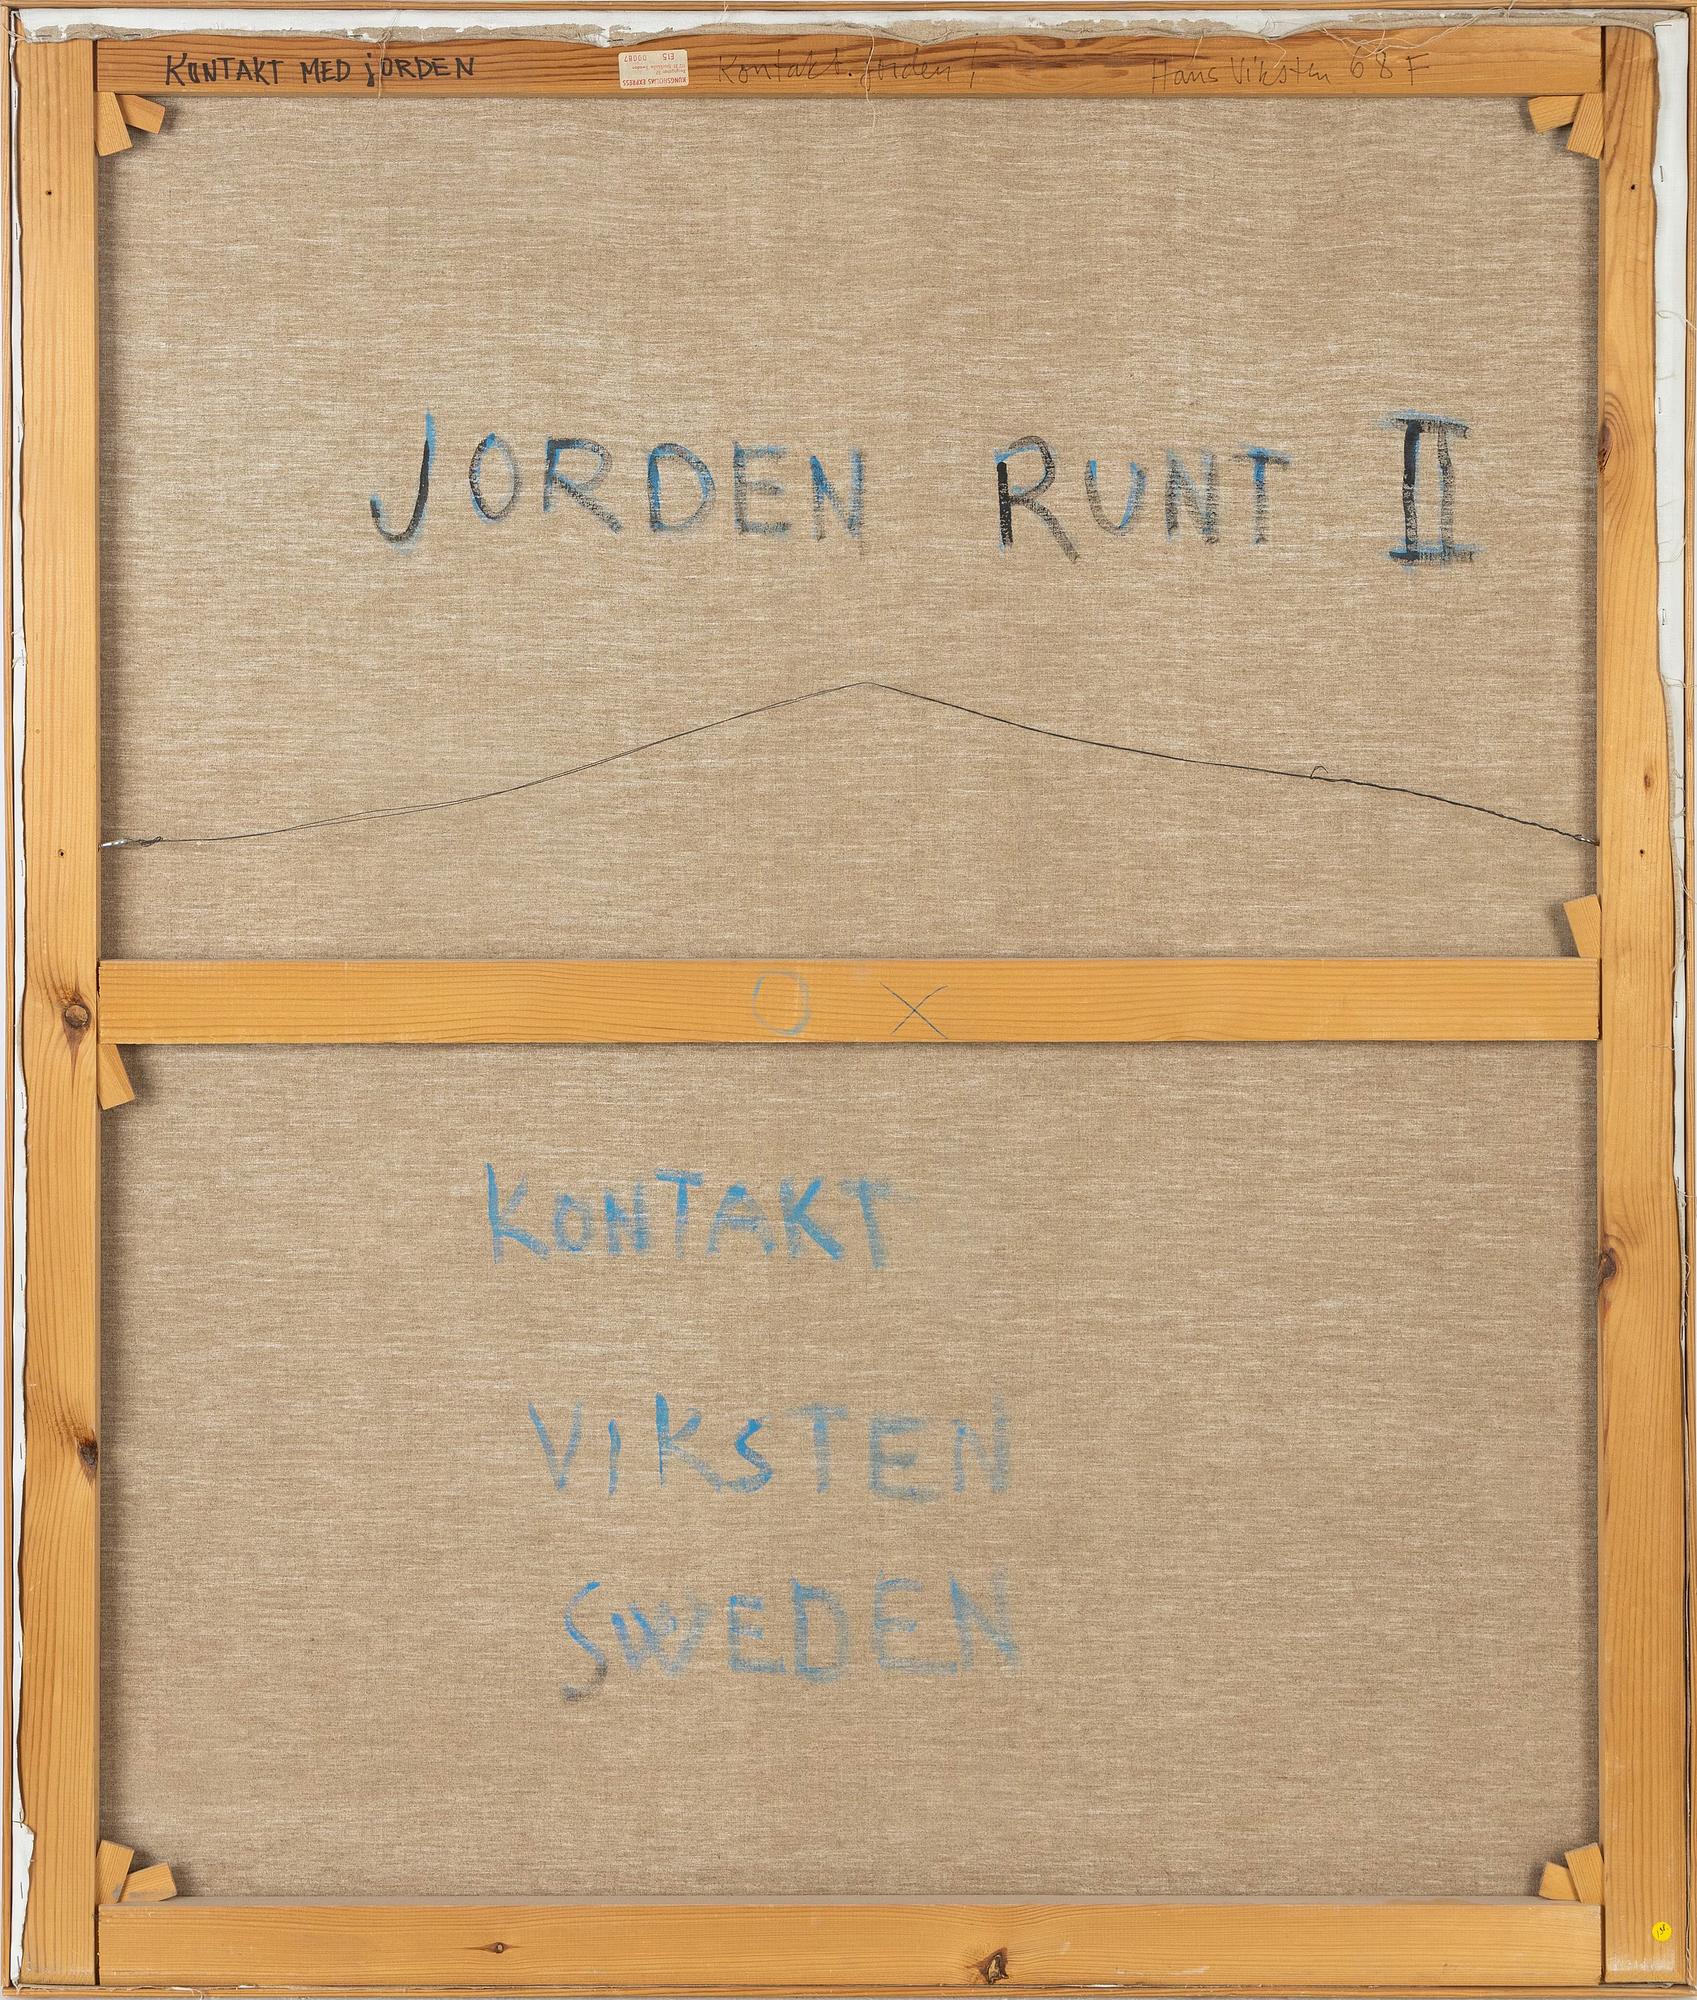 KONTAKT MED jORDEN
KUNGSHOLMS EXPRESS
E15
00087
Kontakt. Jorden!
Hans Viksten 68 F
JORDEN RUNT II
O X
KONTAKT
VIKSTEN
SWEDEN